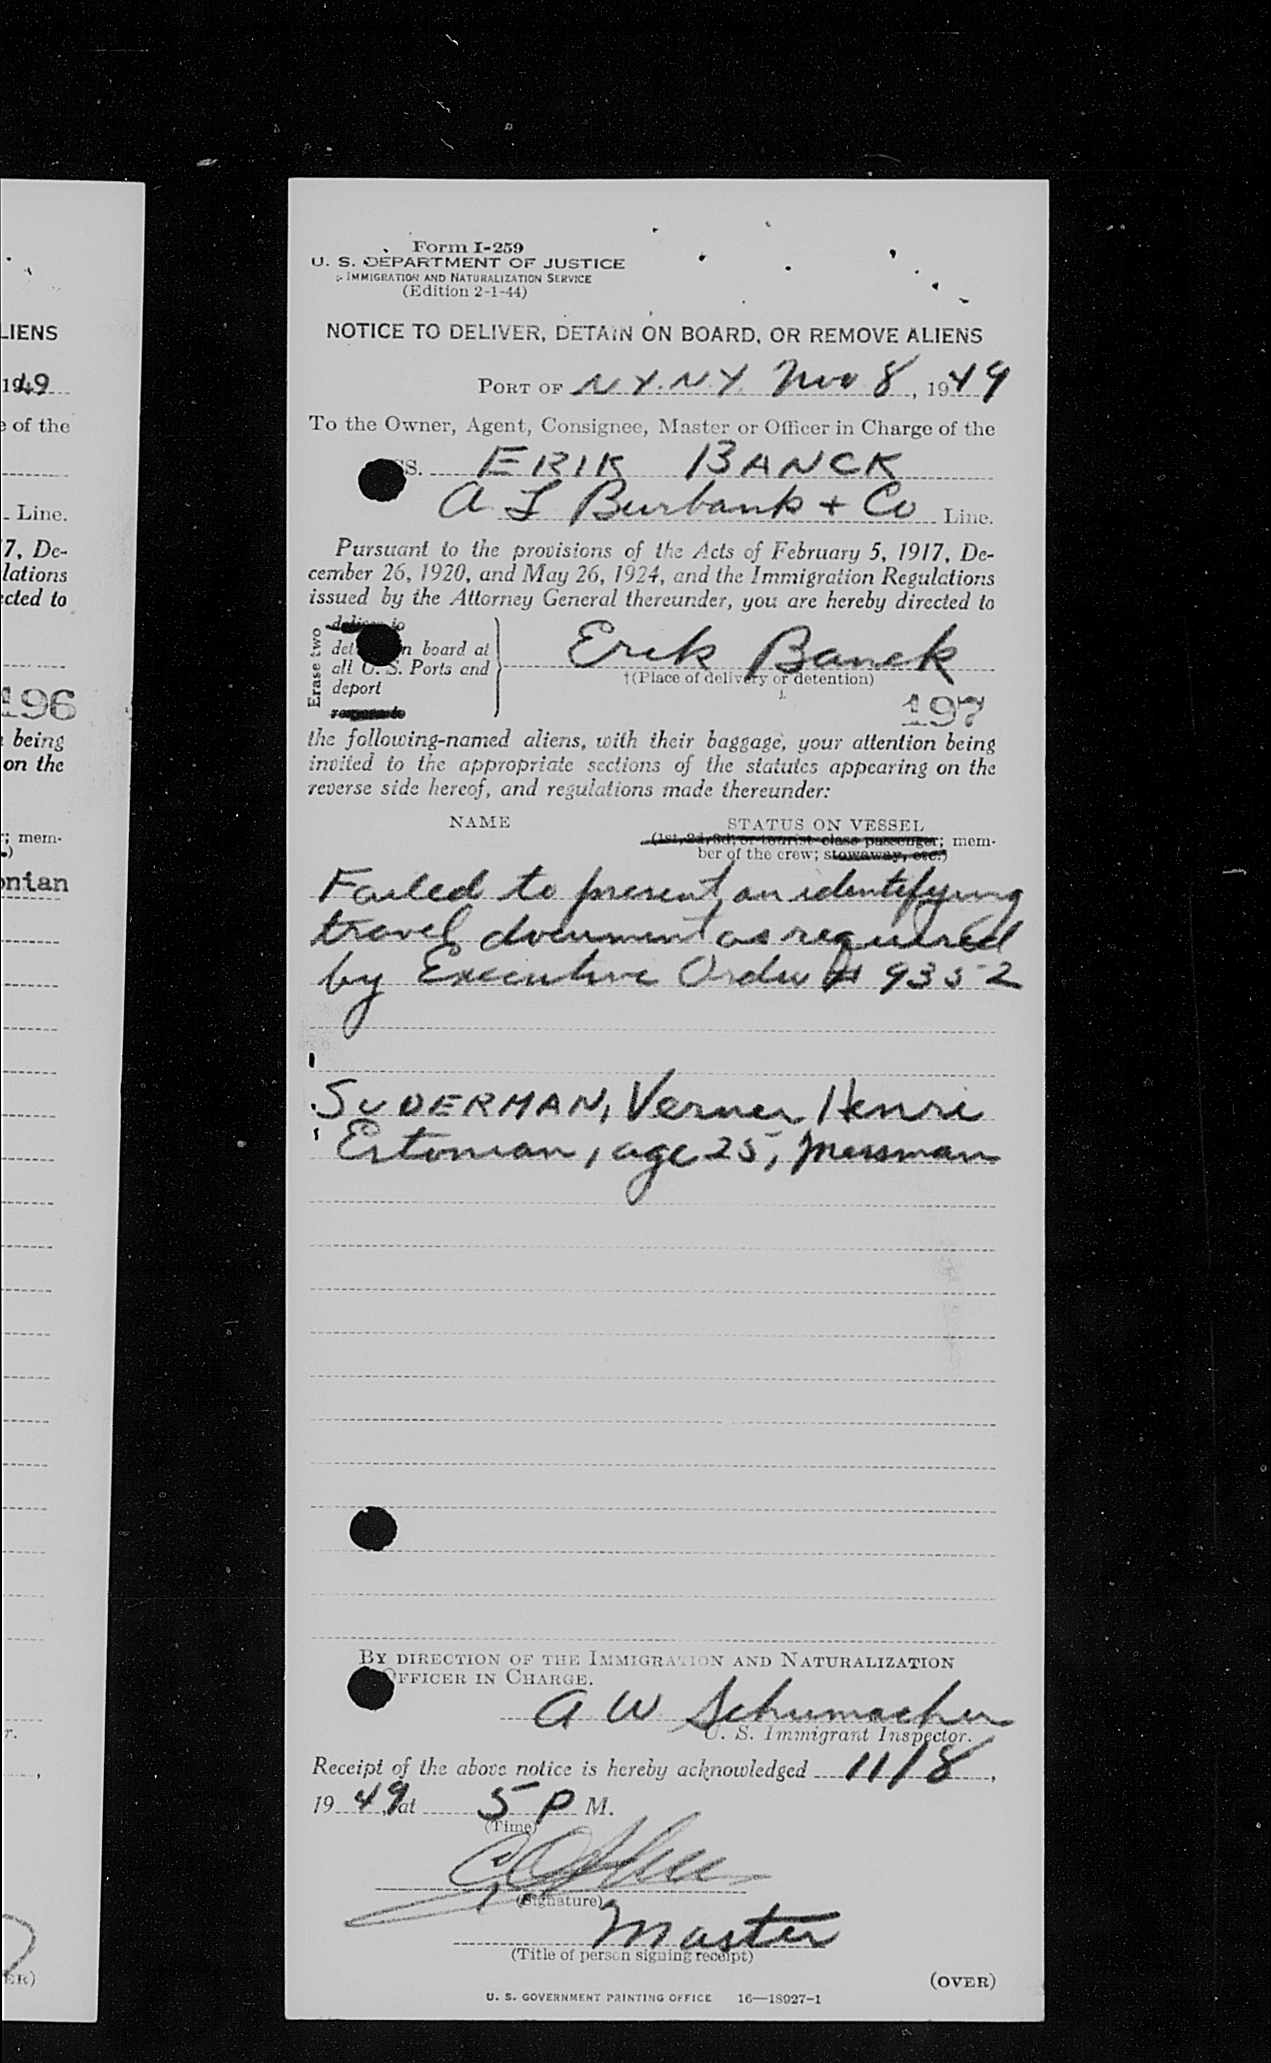 LIENS
1949
e of the
Line.
7, De-
lations
cted to
196
being
on the
; mem-
onian
r.
ER)
Form I-259
U. S. DEPARTMENT OF JUSTICE
IMMIGRATION AND NATURALIZATION SERVICE
(Edition 2-1-44)
NOTICE TO DELIVER, DETAIN ON BOARD, OR REMOVE ALIENS
PORT OF N.Y. N.Y. Nov 8, 1949
To the Owner, Agent, Consignee, Master or Officer in Charge of the
SS. ERIK BANCK
A L Burbank + Co Line.
Pursuant to the provisions of the Acts of February 5, 1917, De-
cember 26, 1920, and May 26, 1924, and the Immigration Regulations
issued by the Attorney General thereunder, you are hereby directed to
Erase two
deliver to
det n board at
all U. S. Ports and
deport
remove to
Erik Banck
†(Place of delivery or detention)
197
the following-named aliens, with their baggage, your attention being
invited to the appropriate sections of the statutes appearing on the
reverse side hereof, and regulations made thereunder:
NAME STATUS ON VESSEL
(1st, 2d, 3d, or tourist class passenger; mem-
ber of the crew; stowaway, etc.)
Failed to present an identifying
travel document as required
by Executive Order # 9352
SUDERMAN, Verner Henri
Estonian, age 25, Messman
BY DIRECTION OF THE IMMIGRATION AND NATURALIZATION
OFFICER IN CHARGE.
A W Schumacher
U. S. Immigrant Inspector.
Receipt of the above notice is hereby acknowledged 11/8,
1949, at 5 P M.
(Time)
(Signature)
Master
(Title of person signing receipt)
(OVER)
U. S. GOVERNMENT PRINTING OFFICE 16—18927-1